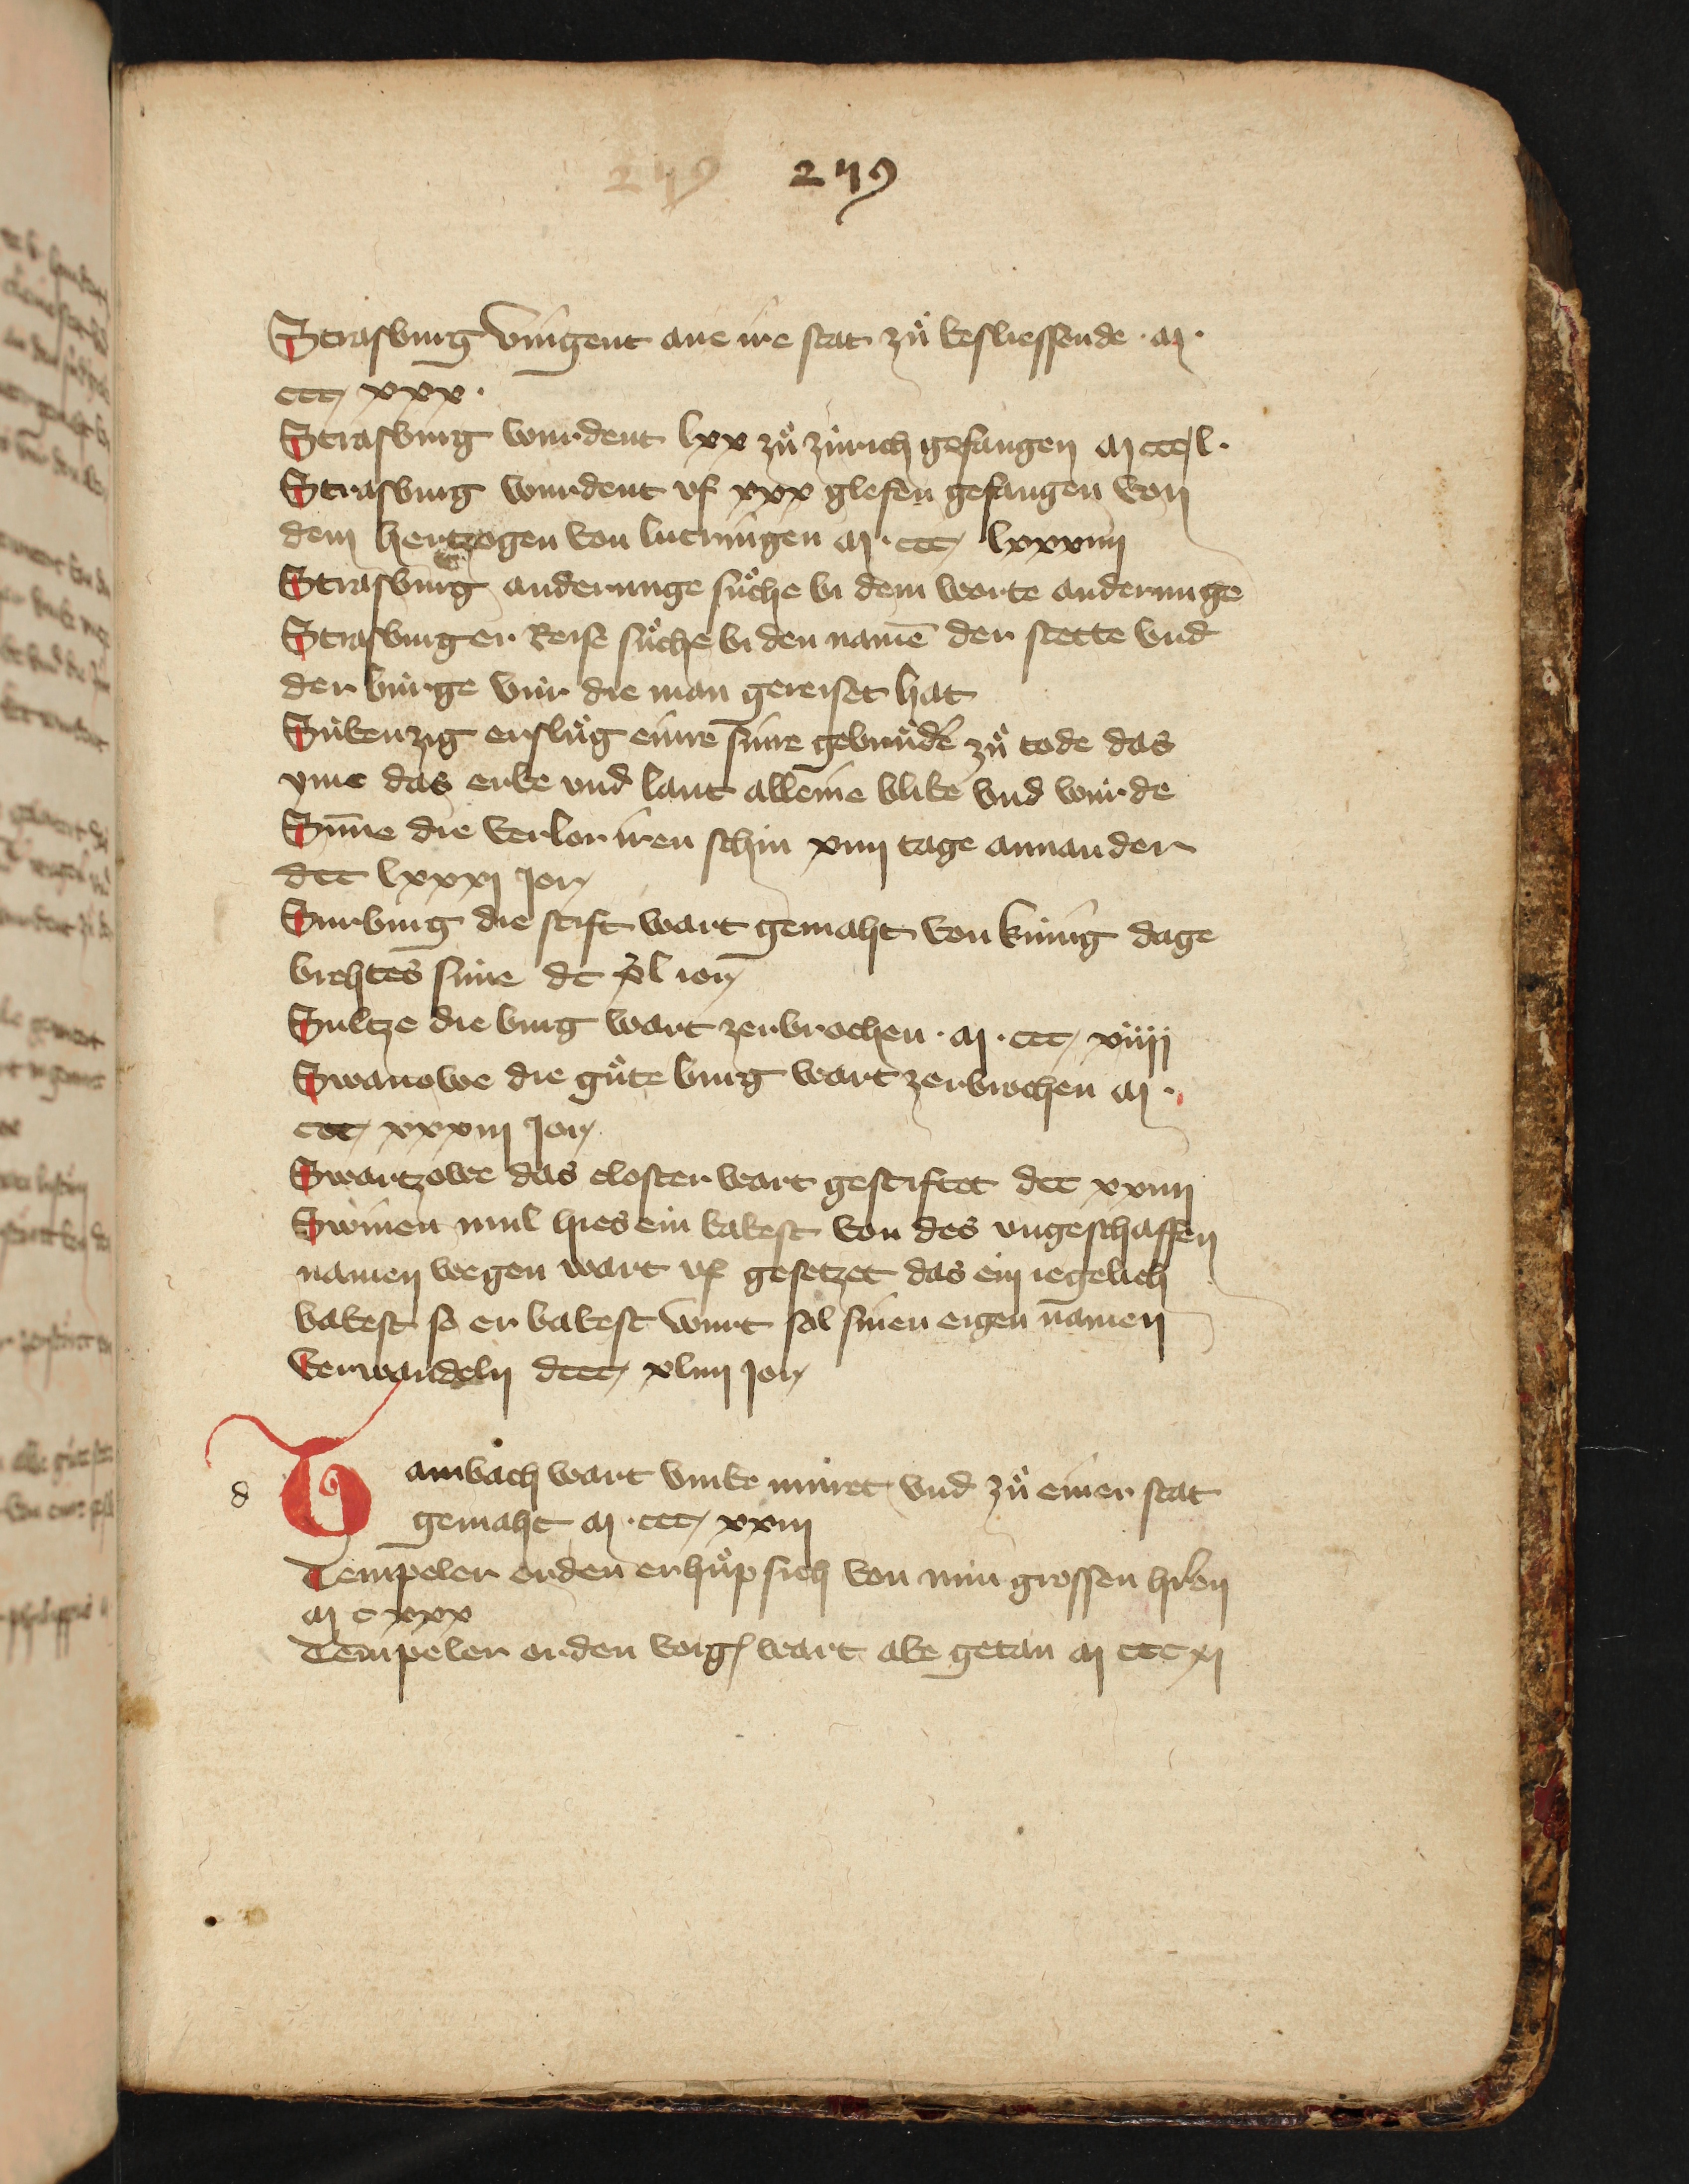 279 279
Strasburg vingent ane ire stat zuͦ besliessende · M ·
ccc xxx ·
Strasburg wurdent lxx zuͦ zürich gefangen M ccc l ·
Strasburg wurdent vf xxx glefen gefangen von
dem hertzogen von lutringen M · ccc lxxxiiij
Strasburg anderunge suͦche bi dem worte anderunge
Strasburger Reise suͦche bi den namē der stette vnd
der bürge vür die man gereiset hat
Sübenzig ersluͦg einre sinre gebruͦder zuͦ tode das
yme das erbe vnd lant alleine blibe vnd würde
Sūne die verlor iren schin xviij tage annander
dcc lxxxxj jor
Surburg die stift wart gemaht von künig dage
brehtes sune dc xl ior
Sultze die burg wart zerbrochen · M · ccc xiiij
Swanowe die guͦte burg wart zerbrochen M ·
ccc xxxiij jor
Swartzowe das closter wart gestiftet dcc xxiiij
Swinen mul hies ein babest von des vngeschaffen
namen wegen wart vf gesetzet das ein iegelich
babest so er babest wurt sol sinen eigen namen
verwandeln dccc xliij jor
d
Tambach wart vmbe muret vnd zuͦ einer stat
gemaht M · ccc xxiij
Tempeler orden erhuͦp sich von nün grossen hr̄en
M c xxx
Tempeler orden vorg wart abe getan M ccc xj